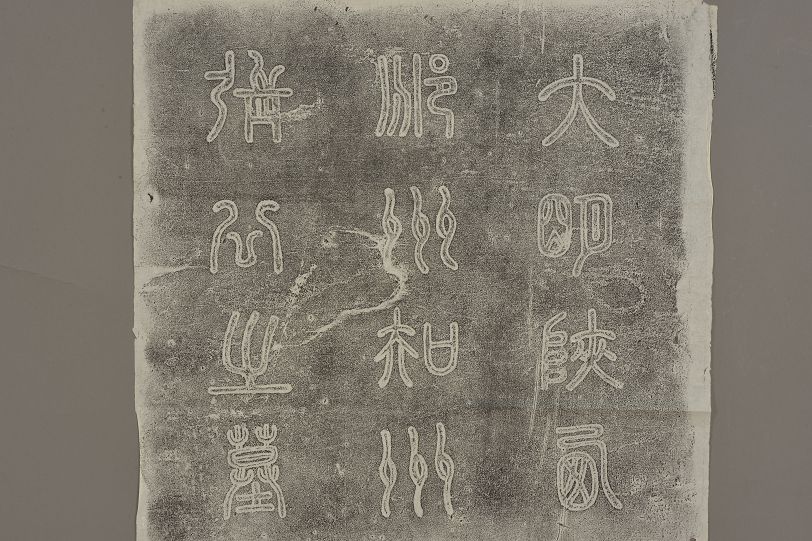 大明陝西
州知州
張公之墓